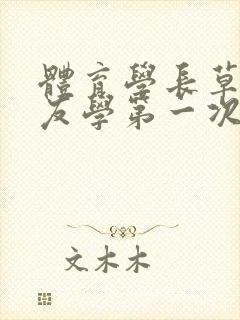 體育學長草
友學第一次
文木木